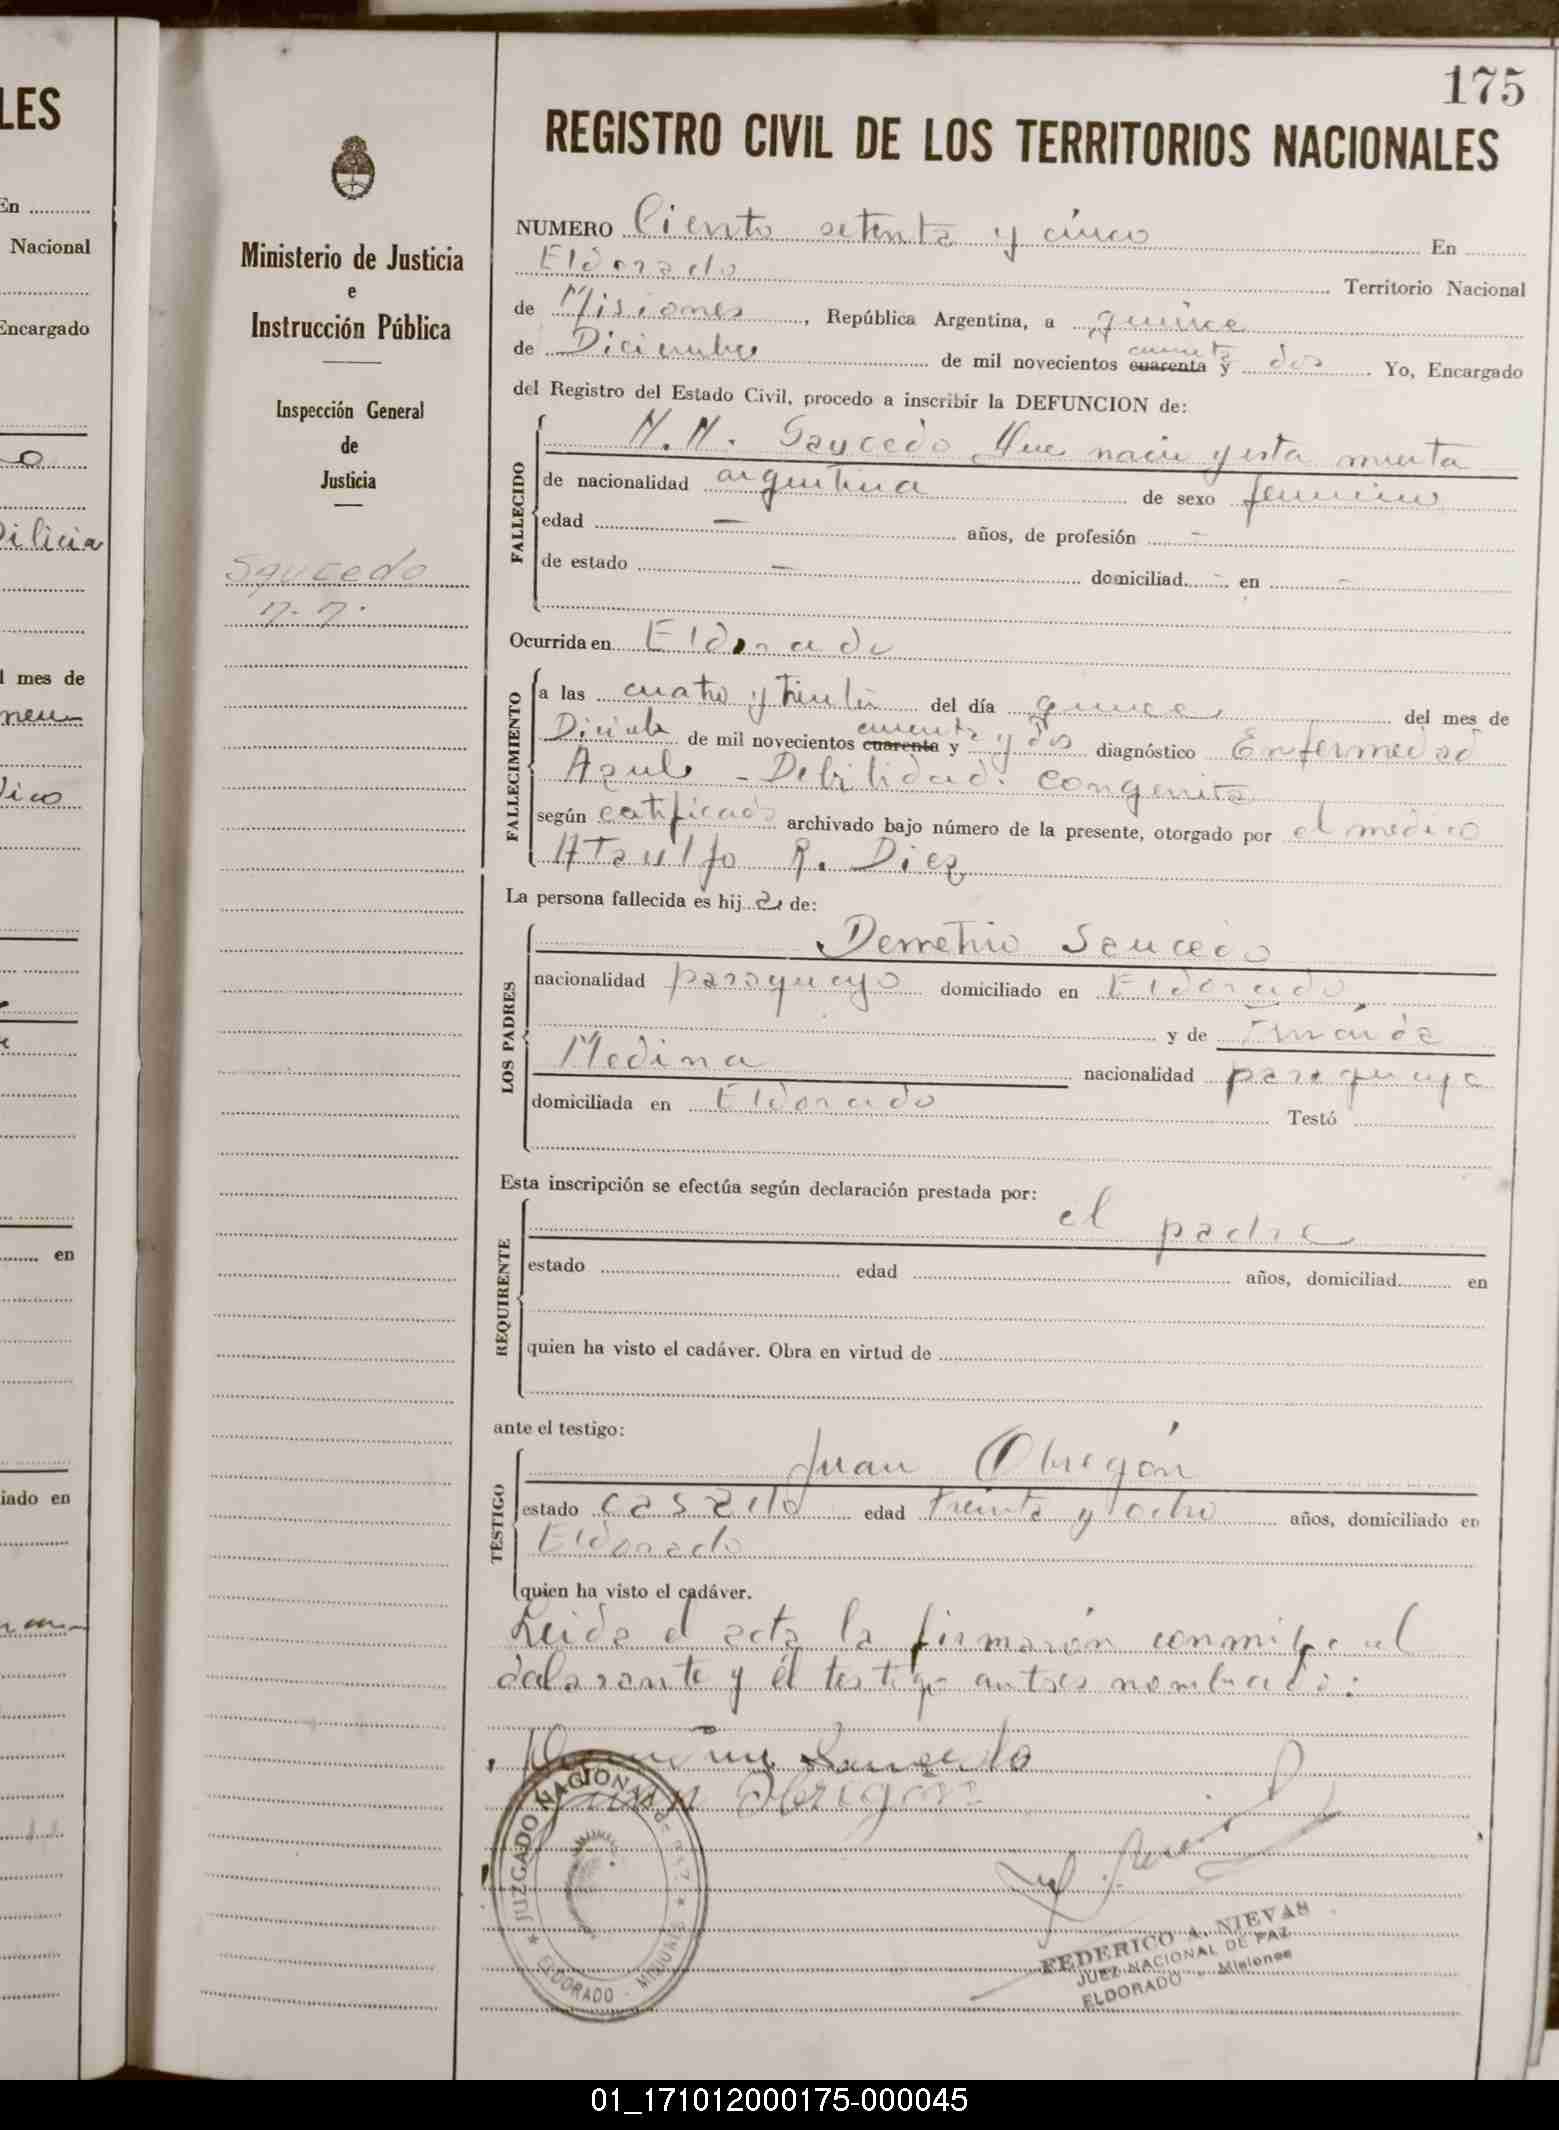 LES
En
Nacional
Encargado
Dilicia
l mes de
dico
en
iado en
Ministerio de Justicia
e
Instrucción Pública
Inspección General
de
Justicia
Saucedo
n. n.
175
REGISTRO CIVIL DE LOS TERRITORIOS NACIONALES
NUMERO Ciento setenta y cinco En
Eldorado Territorio Nacional
de Misiones, República Argentina, a quince
de Diciembre de mil novecientos cuarenta cincuenta y dos Yo, Encargado
del Registro del Estado Civil, procedo a inscribir la DEFUNCION de:
FALLECIDO
N.N. Saucedo Que nacio y esta muerta
de nacionalidad argentina de sexo femenino
edad — años, de profesión —
de estado — domiciliad - en -
Ocurrida en Eldorado
FALLECIMIENTO
a las cuatro y treinta del día quince del mes de
Diciembre de mil novecientos cuarenta cincuenta y y dos diagnóstico Enfermedad
Azul - Debilidad congenita
según certificado archivado bajo número de la presente, otorgado por el medico
Ataulfo R. Diez
La persona fallecida es hij a de:
LOS PADRES
Demetrio Saucedo
nacionalidad paraguayo domiciliado en Eldorado
y de
Medina nacionalidad paraguaya
domiciliada en Eldorado Testó
Esta inscripción se efectúa según declaración prestada por:
REQUIRENTE
el padre
estado edad años, domiciliad en
quien ha visto el cadáver. Obra en virtud de
ante el testigo:
TESTIGO
Juan Obregón
estado casado edad treinta y ocho años, domiciliado en
Eldorado
quien ha visto el cadáver.
Leida el acta la firmarón conmigo el
dalarante y él testigo antres nombrado:
Saucedo
Juan Obrigon
JUZGADO NACIONAL DE PAZ
ELDORADO - MISIONES
FEDERICO A. NIEVAS
JUEZ NACIONAL DE PAZ
ELDORADO - Misiones
01_171012000175-000045